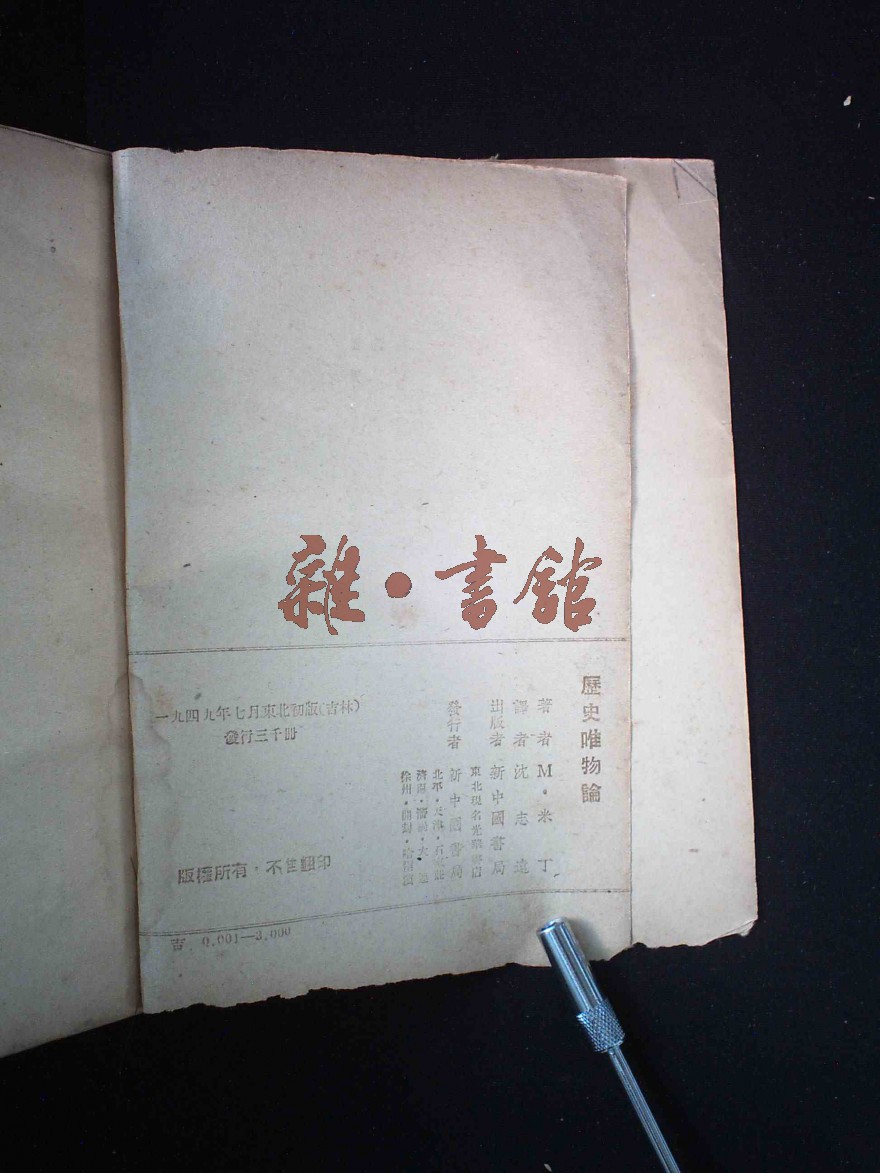 雜·書舘
歷史唯物論
著者 M·米丁
譯者 沈志遠
出版者 新中國書局
東北現名光華書店
發行者 新中國書局
北平·天津·石家莊
濟南·濰坊·大連
徐州·開封·哈爾濱
一九四九年七月東北初版(吉林)
發行三千冊
版權所有·不准翻印
吉. 0,001—3,000